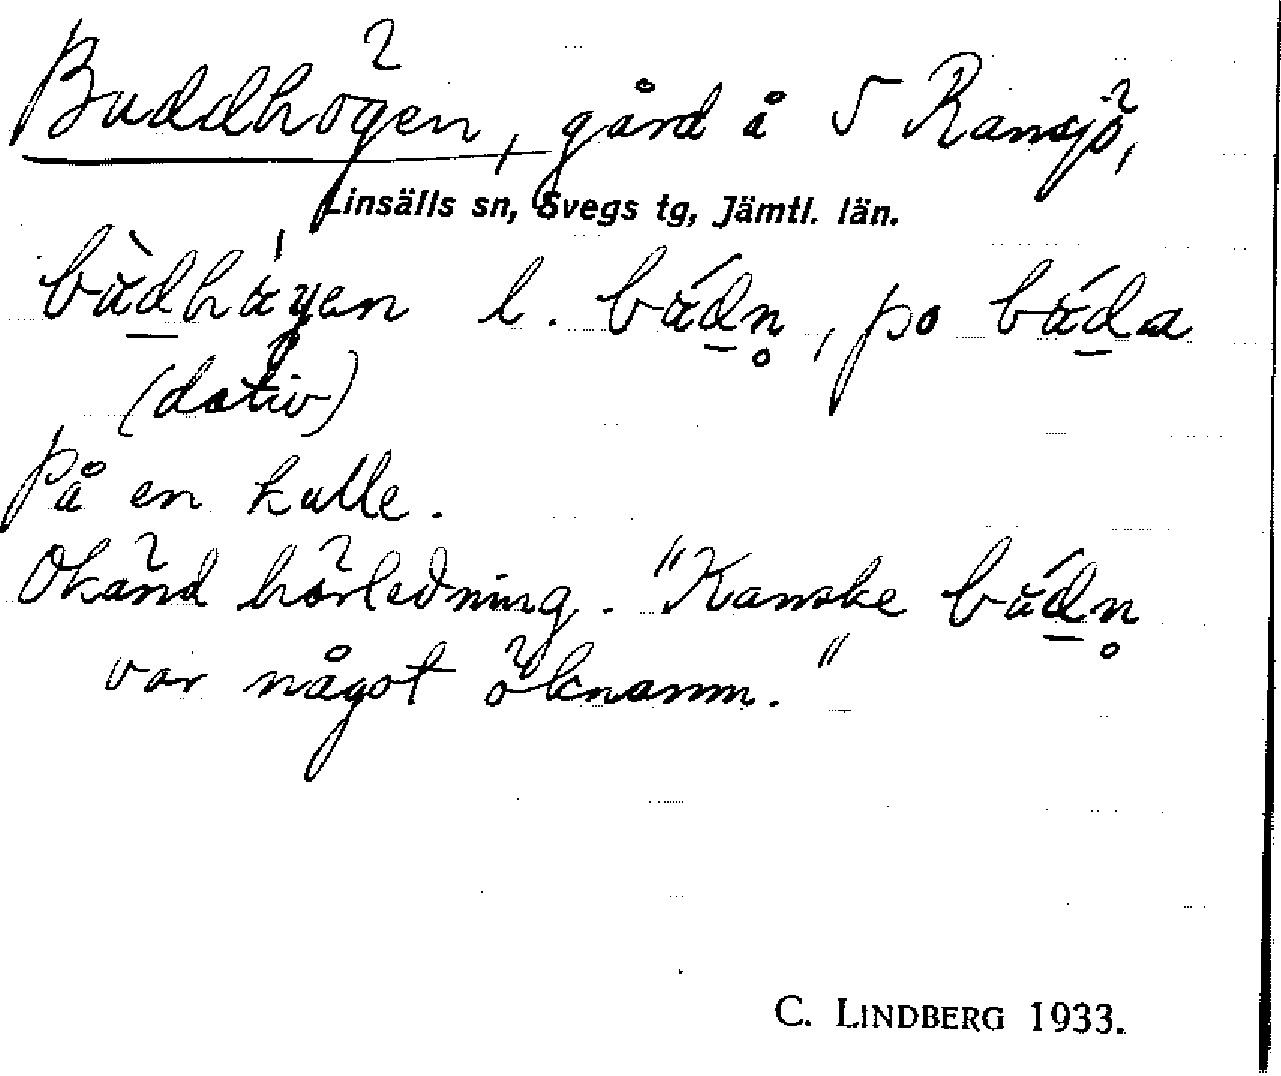 Buddhögen, gård å 5 Ransjö,
Linsälls sn, Svegs tg, Jämtl. län.
bùdhǿgen l. búdn̥, po búda
(dativ)
på en kulle.
Okänd härledning. "Kanske búdn̥
var något öknamn."
C. LINDBERG 1933.